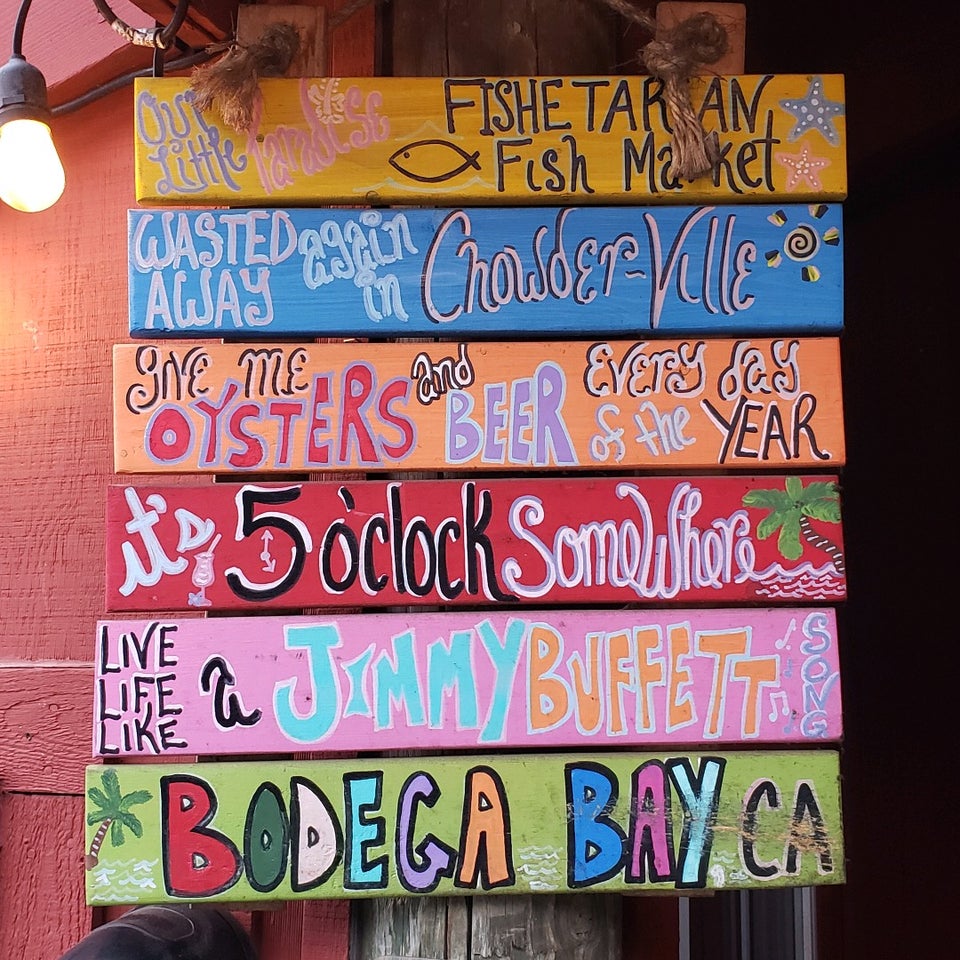 Our Little Paradise FISHETARIAN Fish Market
WASTED AWAY again in Chowder-Ville
GIVE ME OYSTERS and BEER EVERY DAY of the YEAR
it's 5 o'clock SomeWhere
LIVE LIFE LIKE a JIMMY BUFFETT SONG
BODEGA BAY CA